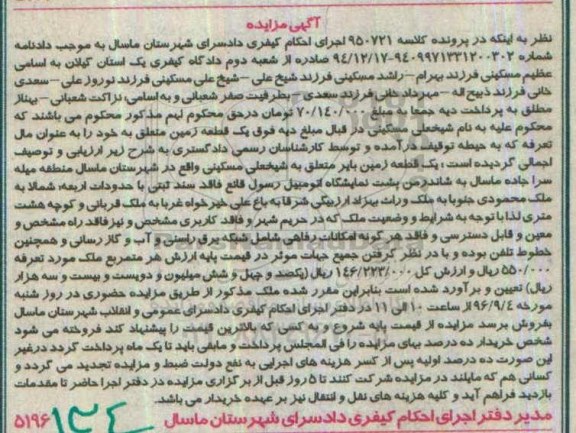 آگهی مزایده
نظر به اینکه در پرونده کلاسه ۹۵۰۷۲۱ اجرای احکام کیفری دادسرای شهرستان ماسال به موجب دادنامه
شماره ۹۴۰۹۹۷۱۳۳۱۲۰۰۳۰۲-۹۴/۱۲/۱۷ صادره از شعبه دوم دادگاه کیفری یک استان گیلان به اسامی
عظیم مسکینی فرزند بهرام – راشد مسکینی فرزند شیخ علی – شیخ علی مسکینی فرزند نوروز علی – سعدی
خانی فرزند ذبیح اله – مهرداد خانی فرزند سعدی – بطرفیت صفر شعبانی و به اسامی: نزاکت شعبانی – بهناز
مطلق به پرداخت دیه جمعا به مبلغ ۷۰/۱۴۰/۰۰۰ تومان درحق محکوم لهم مذکور محکوم می باشند که
محکوم علیه به نام شیخعلی مسکینی در قبال مبلغ دیه فوق یک قطعه زمین متعلق به خود را به عنوان مال
تعرفه که به حیطه توقیف درآمده و توسط کارشناسان رسمی دادگستری به شرح زیر ارزیابی و توصیف
اجمالی گردیده است : یک قطعه زمین بایر متعلق به شیخعلی مسکینی واقع در شهرستان ماسال منطقه مهله
سرا جاده ماسال به شاندرمن پشت نمایشگاه اتومبیل رسول قانع فاقد سند ثبتی با حدودات اربعه: شمالا به
ملک محمودی جنوبا به ملک وراث بهزاد ارژبیگی شرقا به باغ علی خیرخواه غربا به ملک قربانی و کوچه هشت
متری لذا با توجه به شرایط و وضعیت ملک که در حریم شهر و فاقد کاربری مشخص و نیز فاقد راه مشخص و
معین و قابل دسترسی و فاقد هر گونه امکانات رفاهی شامل شبکه برق رسانی و آب و گاز رسانی و همچنین
خطوط تلفن بوده و با در نظر گرفتن جمیع جهات موثر در قیمت پایه ارزش هر مترمربع ملک مورد تعرفه
۵۵۰/۰۰۰ ریال و ارزش کل ۱۴۶/۲۲۳/۰۰۰ ریال (یکصد و چهل و شش میلیون و دویست و بیست و سه هزار
ریال) تعیین و برآورد شده است بنابراین مقرر شده ملک مذکور از طریق مزایده حضوری در روز شنبه
مورخه ۹۶/۹/۴ از ساعت ۱۰ الی ۱۱ در دفتر اجرای احکام کیفری دادسرای عمومی و انقلاب شهرستان ماسال
بفروش برسد مزایده از قیمت پایه شروع و به کسی که بالاترین قیمت را پیشنهاد کند فروخته می شود
شخص خریدار ده درصد بهای مزایده را فی المجلس پرداخت و مابقی باید تا یک ماه پرداخت گردد درغیر
این صورت ده درصد اولیه پس از کسر هزینه های اجرایی به نفع دولت ضبط و مزایده تجدید می گردد و
کسانی هم که مایلند در مزایده شرکت کنند تا ۵ روز قبل از برگزاری مزایده در دفتر اجرا حاضر تا مقدمات
بازدید فراهم آید و کلیه هزینه های نقل و انتقال نیز بر عهده خریدار می باشد.
مدیر دفتر اجرای احکام کیفری دادسرای شهرستان ماسال
۵۱۹۶